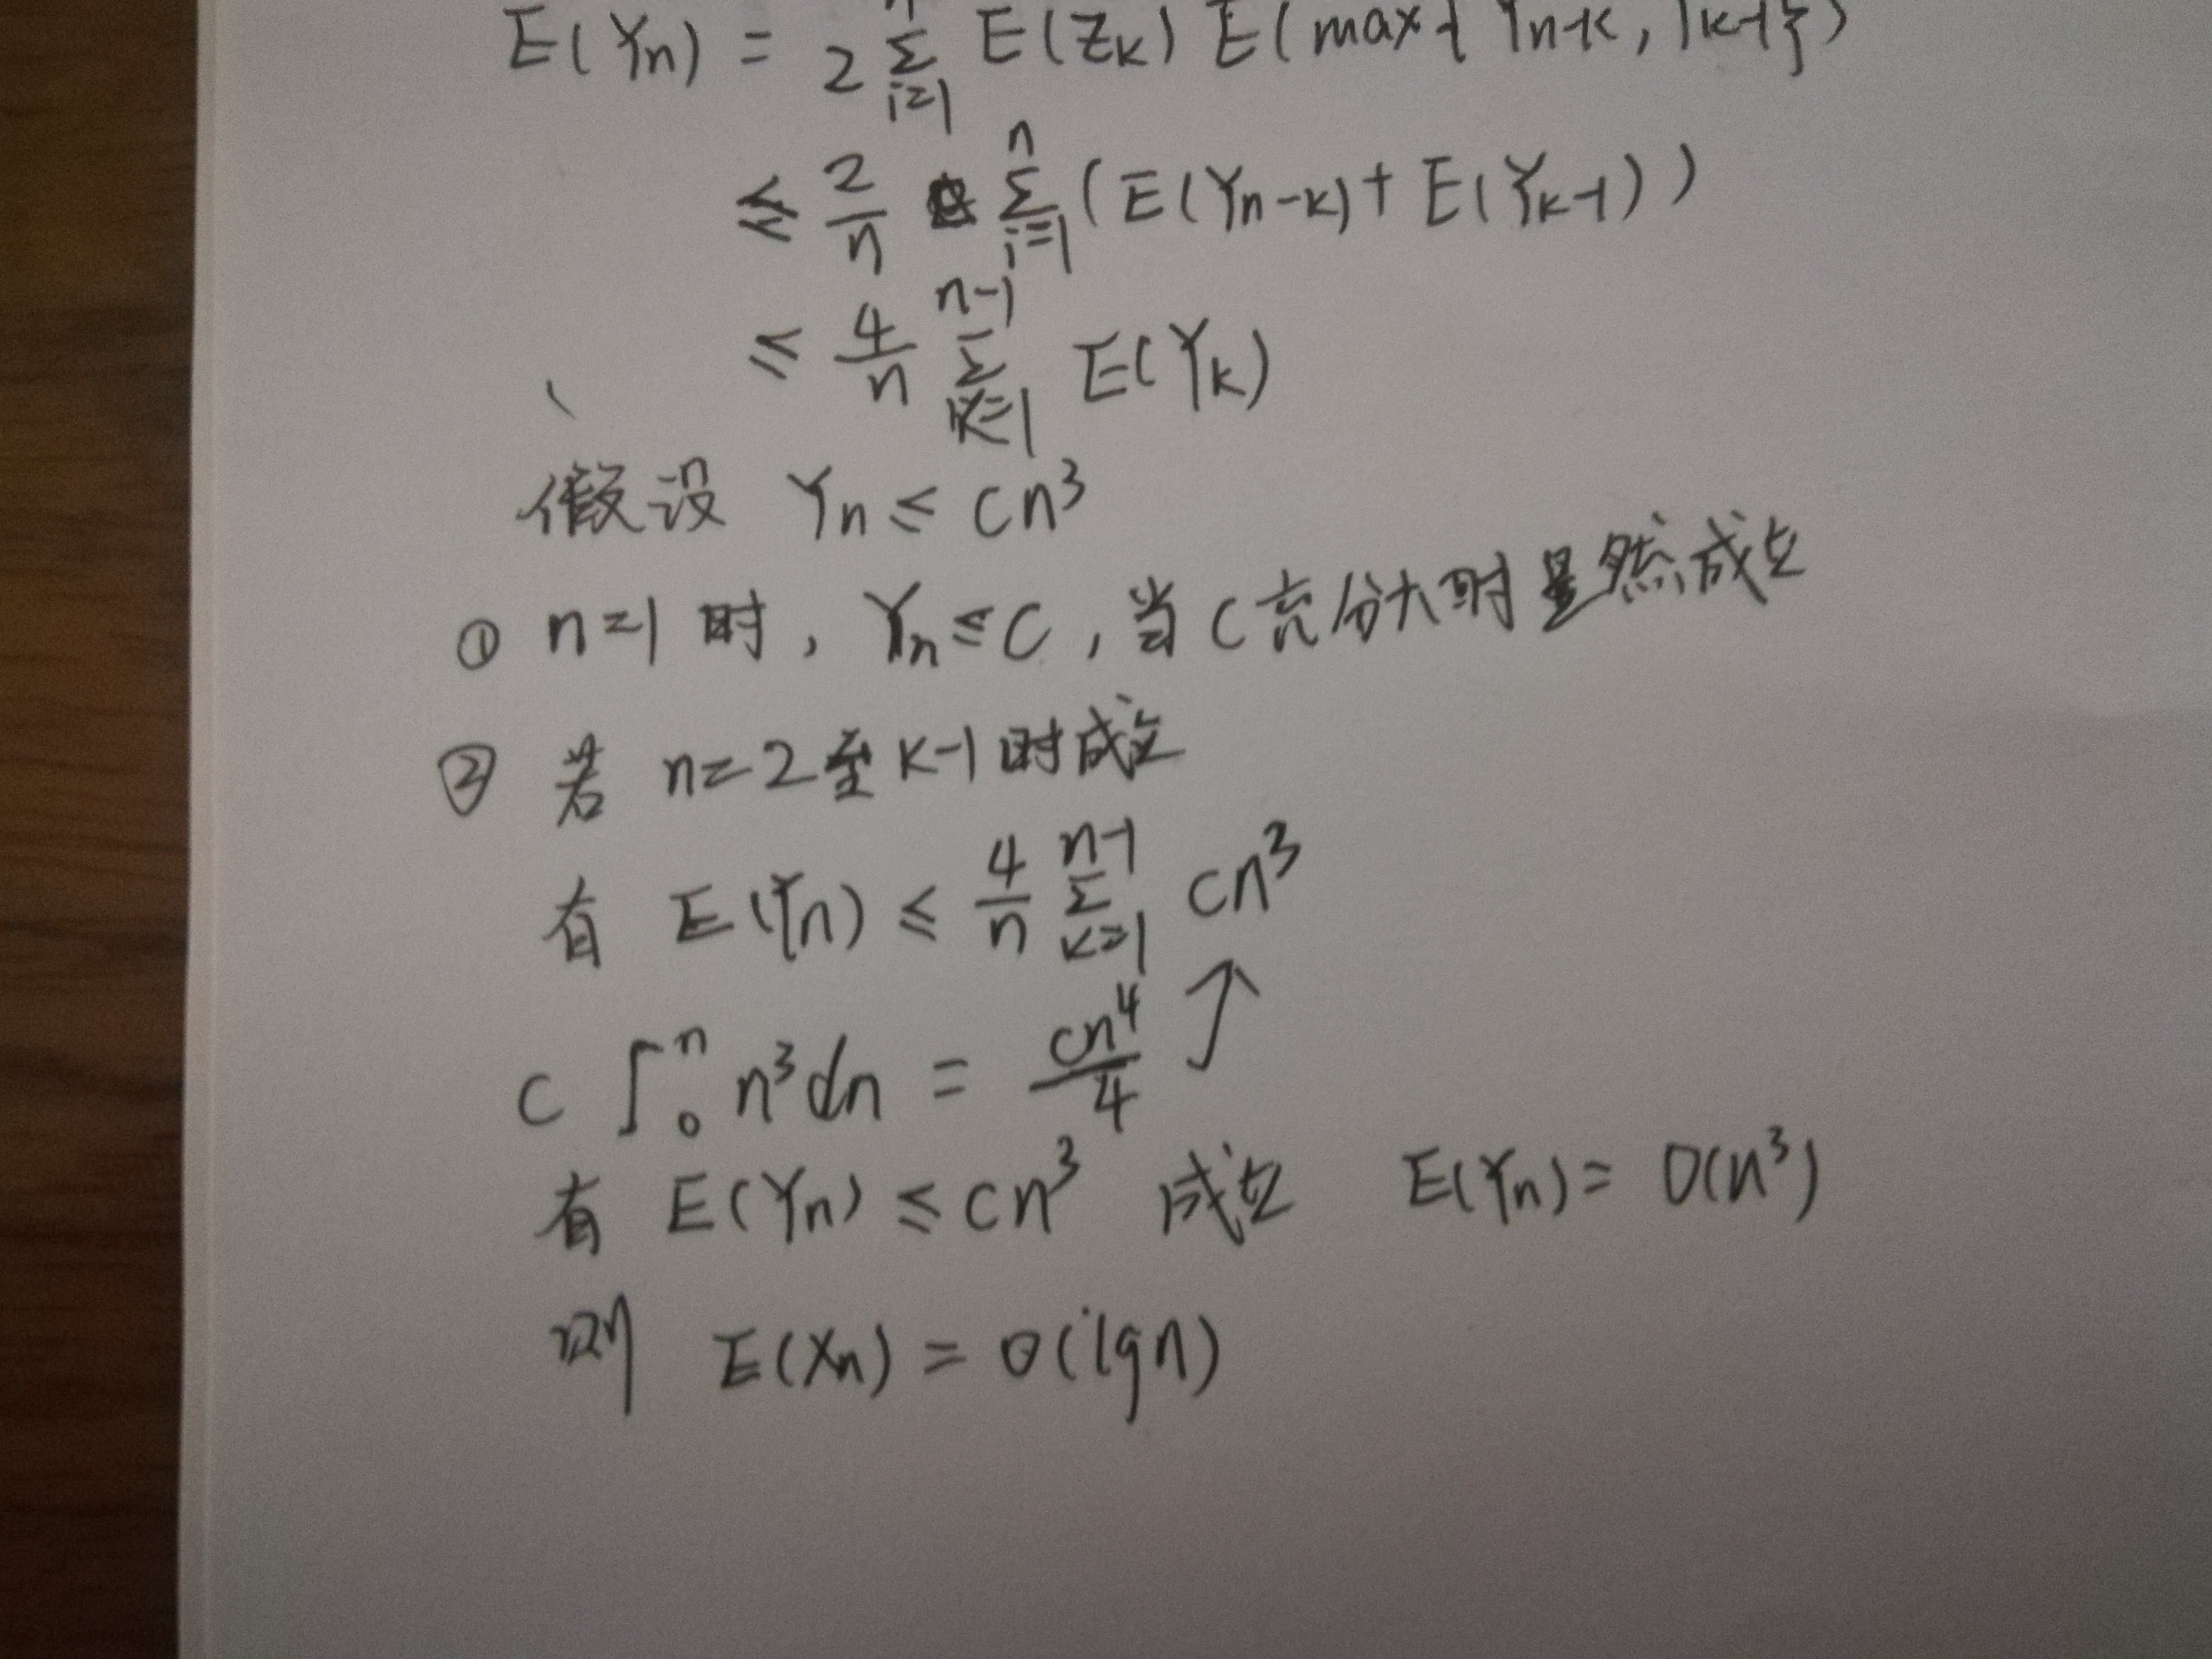 E(Yn) = 2 Σ_{i=1}^{n} E(Zk) E(max{Yn-k, Yk-1})
≤ 2/n Σ_{i=1}^{n} (E(Yn-k) + E(Yk-1))
≤ 4/n Σ_{k=1}^{n-1} E(Yk)
假设 Yn ≤ cn³
① n=1 时, Yn ≤ C, 当 C 充分大时显然成立
② 若 n=2 至 k-1 时成立
有 E(Yn) ≤ 4/n Σ_{k=1}^{n-1} cn³
c ∫_0^n n³dn = cn⁴/4 ↗
有 E(Yn) ≤ cn³ 成立 E(Yn) = O(n³)
则 E(Xn) = O(lgn)